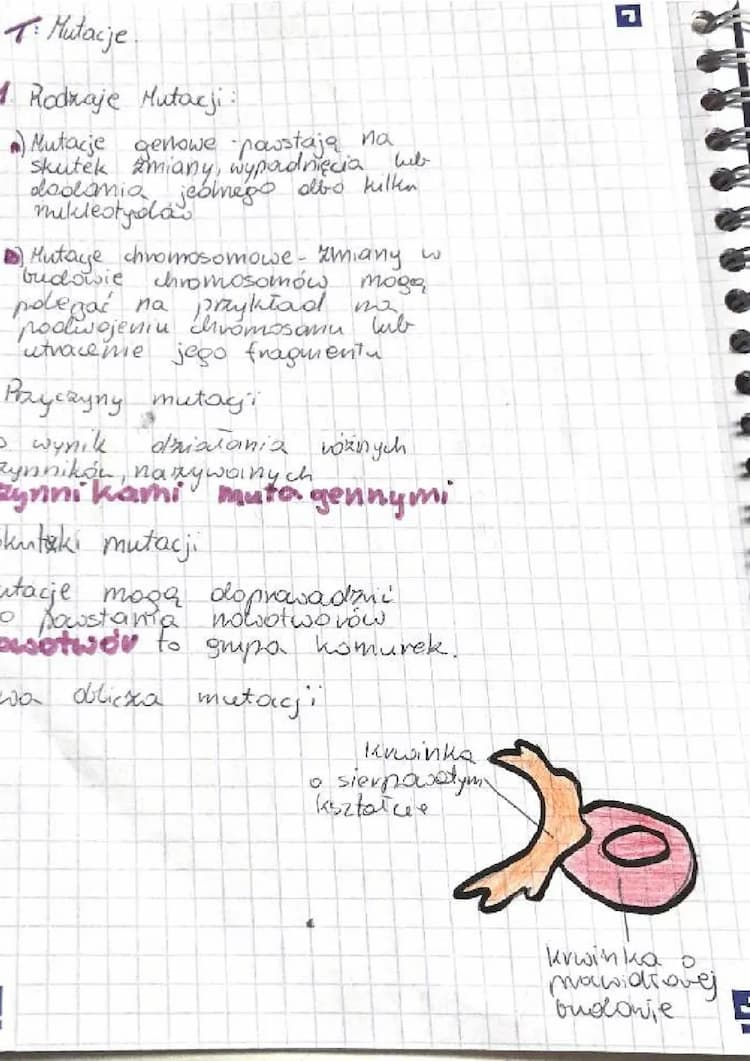 T: Mutacje.
1. Rodzaje Mutacji:
a) Mutacje genowe - powstają na
skutek zmiany, wypadnięcia lub
dodania jednego albo kilku
nukleotydów
b) Mutacje chromosomowe - zmiany w
budowie chromosomów mogą
polegać na przykład na
podwojeniu chromosomu lub
utracenie jego fragmentu
Przyczyny mutacji
o wynik działania różnych
zynników, nazywanych
zynnikami mutagennymi
kutki mutacji
utacje mogą doprowadznić
o powstania nowotworów
owotwór to grupa komurek.
wa oblicza mutacji
krwinka
o sierpowatym
kształcie
krwinka o
prawidłowej
budowie